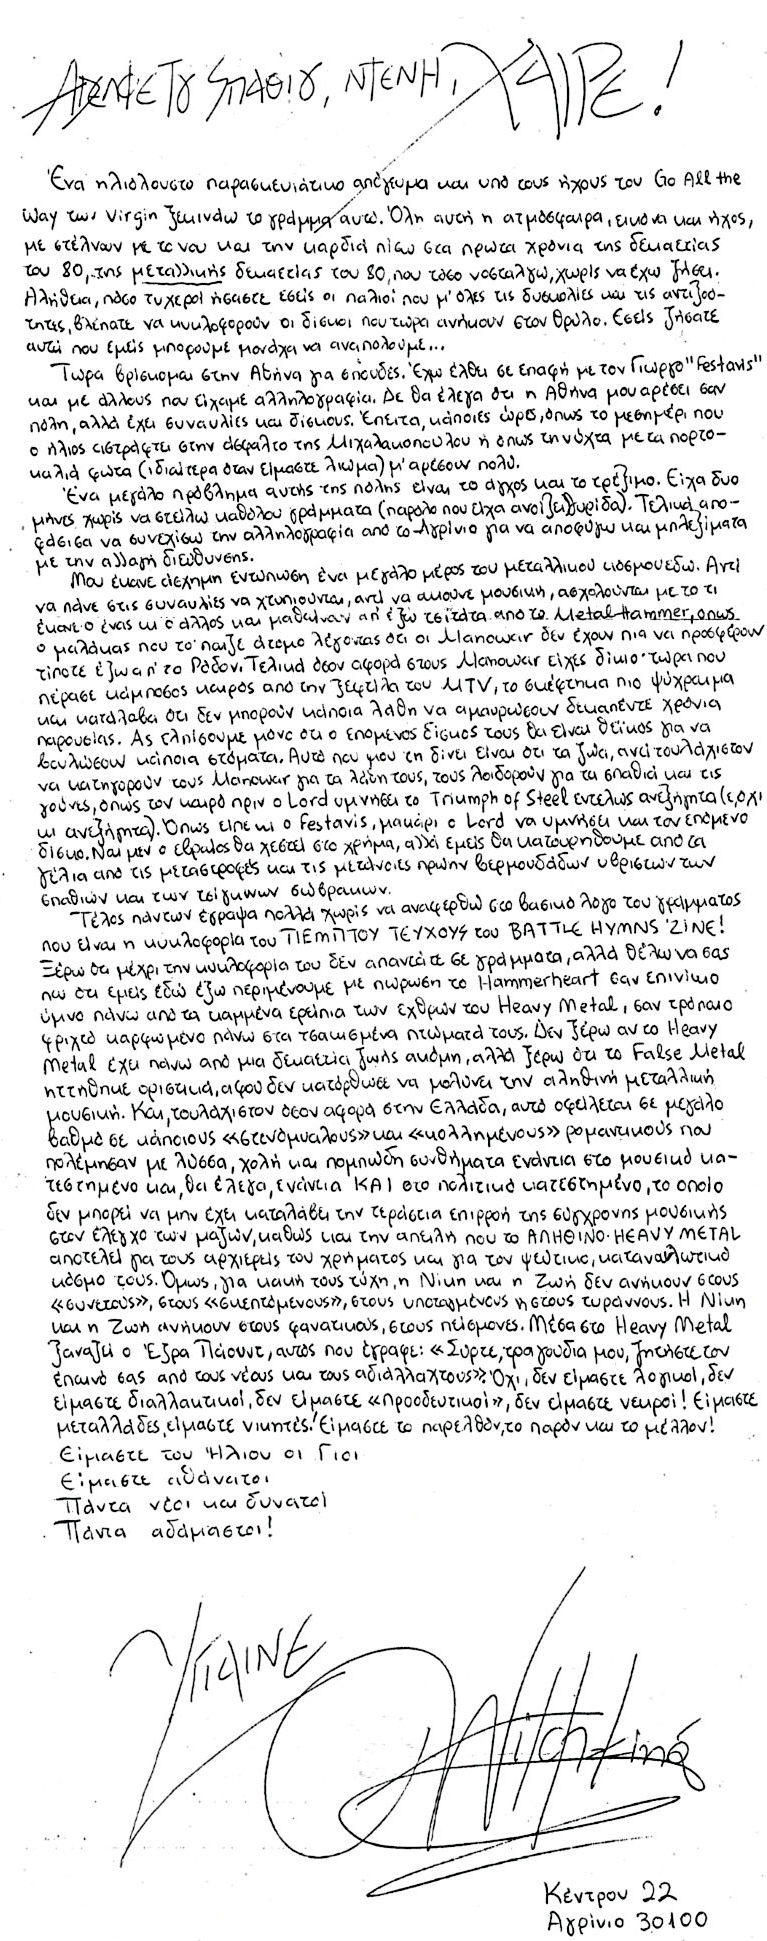 ΑΔΕΛΦΕ ΤΟΥ ΣΠΑΘΙΟΥ, ΝΤΕΝΗ, ΧΑΙΡΕ!
Ένα ηλιόλουστο παρασκευιάτικο απόγευμα και υπό τους ήχους του Go All the
Way των Virgin ξεκινάω το γράμμα αυτό. Όλη αυτή η ατμόσφαιρα, εικόνα και ήχος,
με στέλνουν με το νου και την καρδιά πίσω στα πρώτα χρόνια της δεκαετίας
του 80, της μεταλλικής δεκαετίας του 80, που τόσο νοσταλγώ, χωρίς να έχω ζήσει.
Αλήθεια, πόσο τυχεροί ήσαστε εσείς οι παλιοί που μ' όλες τις δυσκολίες και τις αντιξοό-
τητες, βλέπατε να κυκλοφορούν οι δίσκοι που τώρα ανήκουν στον θρύλο. Εσείς ζήσατε
αυτά που εμείς μπορούμε μονάχα να αναπολούμε...
Τώρα βρίσκομαι στην Αθήνα για σπουδές. Έχω έλθει σε επαφή με τον Γιώργο "Festavis"
και με άλλους που είχαμε αλληλογραφία. Δε θα έλεγα ότι η Αθήνα μου αρέσει σαν
πόλη, αλλά έχει συναυλίες και δίσκους. Έπειτα, κάποιες ώρες, όπως το μεσημέρι που
ο ήλιος αστράφτει στην άσφαλτο της Μιχαλακοπούλου ή όπως τη νύχτα με τα πορτο-
καλιά φώτα (ιδιαίτερα όταν είμαστε λιώμα) μ' αρέσουν πολύ.
Ένα μεγάλο πρόβλημα αυτής της πόλης είναι το άγχος και το τρέξιμο. Είχα δυο
μήνες χωρίς να στείλω καθόλου γράμματα (παρόλο που είχα ανοίξει θυρίδα). Τελικά απο-
φάσισα να συνεχίσω την αλληλογραφία από το Αγρίνιο για να αποφύγω και μπλεξίματα
με την αλλαγή διεύθυνσης.
Μου έκανε άσχημη εντύπωση ένα μεγάλο μέρος του μεταλλικού κόσμου εδώ. Αντί
να πάνε στις συναυλίες να χτυπιούνται, αντί να ακούνε μουσική, ασχολούνται με το τι
έκανε ο ένας κι ο άλλος και μαθαίνουν απ' έξω τσιτάτα από το Metal Hammer, όπως
ο μαλάκας που το 'παιζε άτομο λέγοντας ότι οι Manowar δεν έχουν πια να προσφέρουν
τίποτε έξω απ' το Ρόδον. Τελικά όσον αφορά στους Manowar είχες δίκιο· τώρα που
πέρασε κάμποσος καιρός από την ξεφτίλα του MTV, το σκέφτηκα πιο ψύχραιμα
και κατάλαβα ότι δεν μπορούν κάποια λάθη να αμαυρώσουν δεκαπέντε χρόνια
παρουσίας. Ας ελπίσουμε μόνο ότι ο επόμενος δίσκος τους θα είναι θεϊκός για να
βουλώσουν κάποια στόματα. Αυτό που μου τη δίνει είναι ότι τα ζώα, αντί τουλάχιστον
να κατηγορούν τους Manowar για τα λάθη τους, τους λοιδορούν για τα σπαθιά και τις
γούνες, όπως τον καιρό πριν ο Lord υμνήσει το Triumph of Steel εντελώς ανεξήγητα (ε, όχι
κι ανεξήγητα). Όπως είπε κι ο Festavis, μακάρι ο Lord να υμνήσει και τον επόμενο
δίσκο. Ναι μεν ο εβραίος θα χεστεί στο χρήμα, αλλά εμείς θα κατουρηθούμε από τα
γέλια από τις μεταστροφές και τις μετάνοιες πρώην βερμουδάδων υβριστών των
σπαθιών και των τσίγκινων σώβρακων.
Τέλος πάντων έγραψα πολλά χωρίς να αναφερθώ στο βασικό λόγο του γράμματος
που είναι η κυκλοφορία του ΠΕΜΠΤΟΥ ΤΕΥΧΟΥΣ του BATTLE HYMNS 'ZINE!
Ξέρω ότι μέχρι την κυκλοφορία του δεν απαντάτε σε γράμματα, αλλά θέλω να σας
πω ότι εμείς εδώ έξω περιμένουμε με πώρωση το Hammerheart σαν επινίκιο
ύμνο πάνω από τα καμμένα ερείπια των εχθρών του Heavy Metal, σαν τρόπαιο
φριχτό καρφωμένο πάνω στα τσακισμένα πτώματά τους. Δεν ξέρω αν το Heavy
Metal έχει πάνω από μια δεκαετία ζωής ακόμη, αλλά ξέρω ότι το False Metal
ηττήθηκε οριστικά, αφού δεν κατόρθωσε να μολύνει την αληθινή μεταλλική
μουσική. Και, τουλάχιστον όσον αφορά στην Ελλάδα, αυτό οφείλεται σε μεγάλο
βαθμό σε κάποιους «στενόμυαλους» και «κολλημένους» ρομαντικούς που
πολέμησαν με λύσσα, χολή και πομπώδη συνθήματα ενάντια στο μουσικό κα-
τεστημένο και, θα έλεγα, ενάντια ΚΑΙ στο πολιτικό κατεστημένο, το οποίο
δεν μπορεί να μην έχει καταλάβει την τεράστια επιρροή της σύγχρονης μουσικής
στον έλεγχο των μαζών, καθώς και την απειλή που το ΑΛΗΘΙΝΟ HEAVY METAL
αποτελεί για τους αρχιερείς του χρήματος και για τον ψεύτικο, καταναλωτικό
κόσμο τους. Όμως, για κακή τους τύχη, η Νίκη και η Ζωή δεν ανήκουν στους
«συνετούς», στους «σκεπτόμενους», στους υποταγμένους ή στους τυράννους. Η Νίκη
και η Ζωή ανήκουν στους φανατικούς, στους πείσμονες. Μέσα στο Heavy Metal
ξαναζεί ο Έζρα Πάουντ, αυτός που έγραφε: «Σύρτε, τραγούδια μου, ζητήστε τον
έπαινό σας από τους νέους και τους αδιάλλαχτους». Όχι, δεν είμαστε λογικοί, δεν
είμαστε διαλλακτικοί, δεν είμαστε «προοδευτικοί», δεν είμαστε νεκροί! Είμαστε
μεταλλάδες, είμαστε νικητές! Είμαστε το παρελθόν, το παρόν και το μέλλον!
Είμαστε του Ήλιου οι Γιοι
Είμαστε αθάνατοι
Πάντα νέοι και δυνατοί
Πάντα αδάμαστοι!
ΥΓΙΑΙΝΕ
Witchking
Κέντρου 22
Αγρίνιο 30100